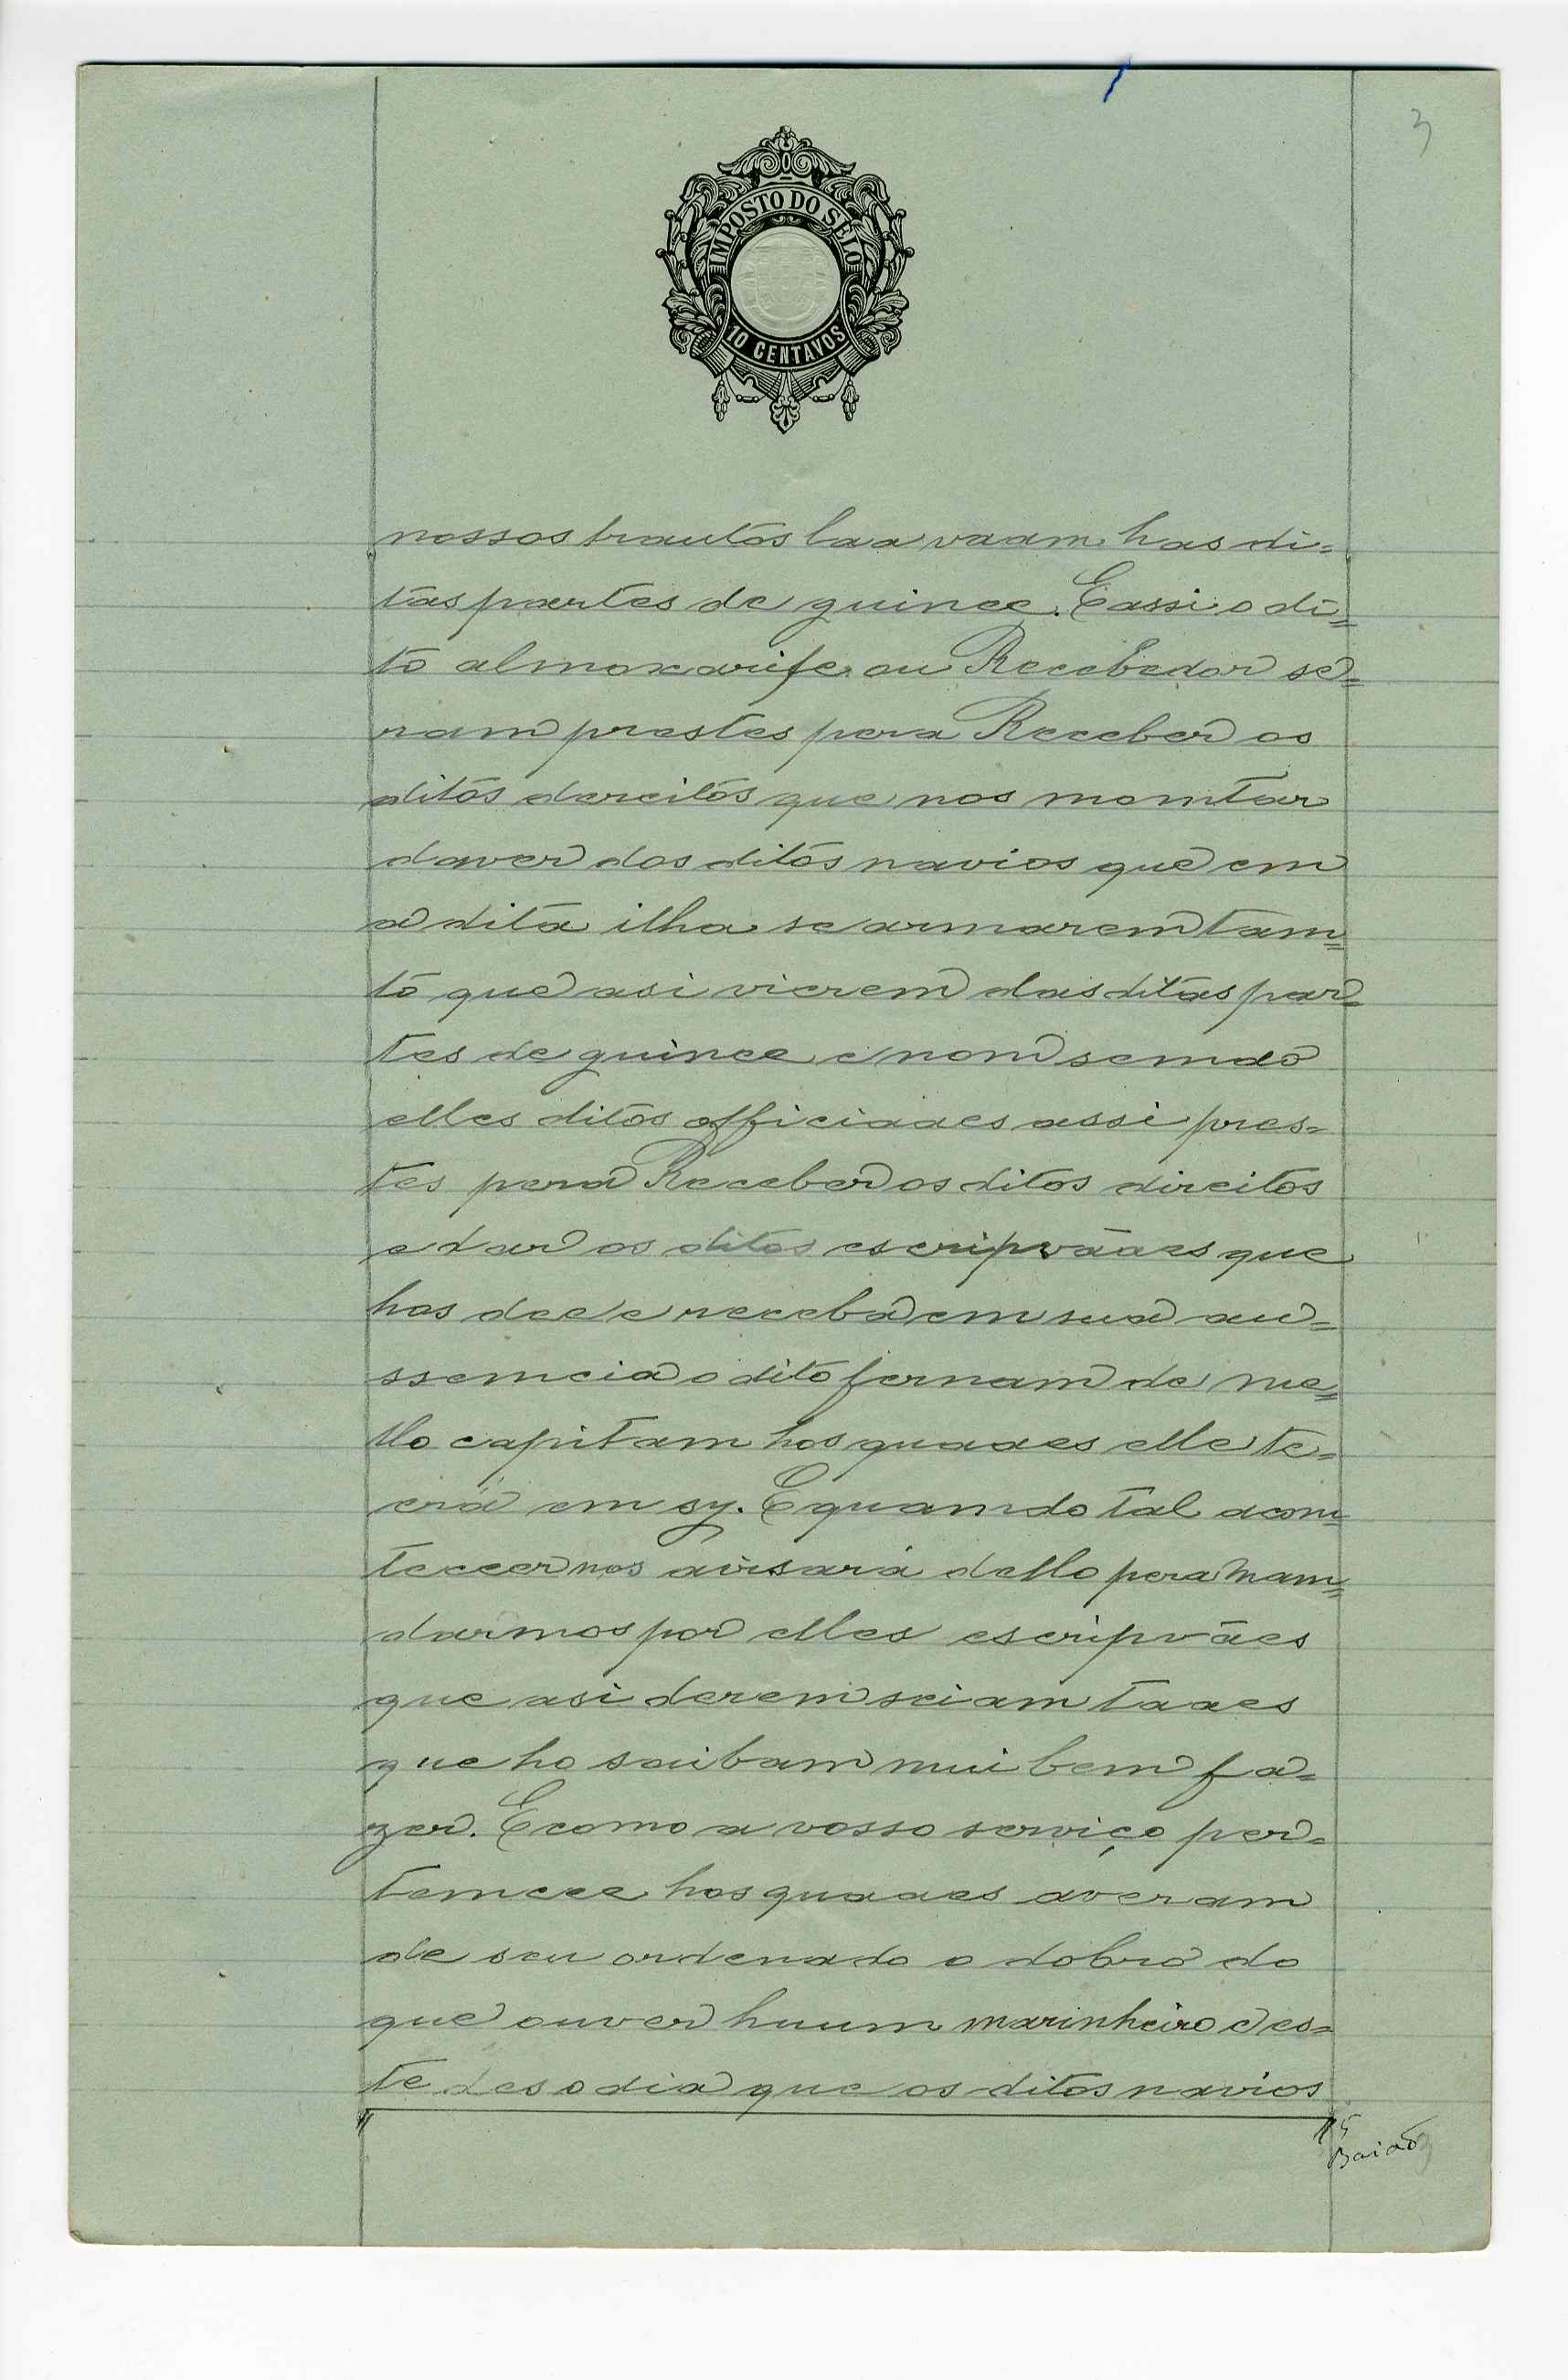 3
IMPOSTO DO SÊLO
10 CENTAVOS
nossos trautos laa vaam has di=
tas partes de guinee. E assi o di=
to almoxarife ou Recebedor se=
ram prestes pera Receber os
ditos dereitos que nos momtar
daver dos ditos navios que em
a dita ilha se armarem tam=
to que asi vierem das ditas par=
tes de guinee e nom semdo
elles ditos officiaaes assi pres=
tes pera Receber os ditos direitos
e dar os ditos escripvãaes que
hos dee e receba em sua au=
ssemcia o dito fernam de me=
llo capitam hos quaaes elle te=
erá em sy. E quamdo tal acom=
teceer nos avisará dello pera mam=
darmos por elles escripvães
que asi derem seiam taaes
que ho saibam mui bem fa=
zer. E como a vosso serviço per=
temcee hos quaaes averam
de seu ordenado o dobro do
que ouver huum marinheiro e es=
te des o dia que os ditos navios
Baião